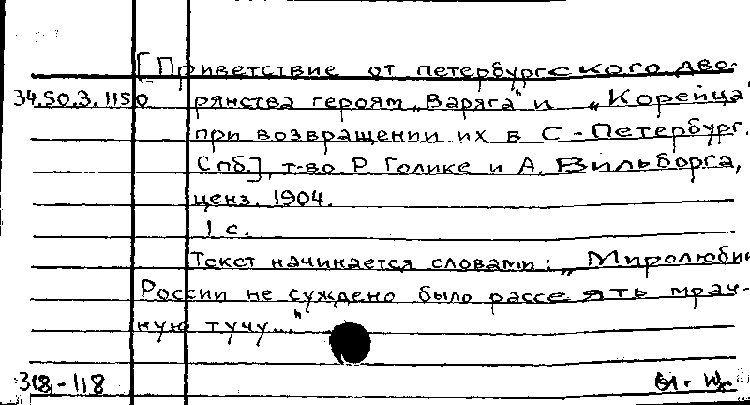 [Приветствие от петербургского дво-
34.50.3.1150 рянства героям „Варяга" и „Корейца"
при возвращении их в С-Петербург.
Спб.], т-во Р. Голике и А. Вильборга,
ценз. 1904.
1 с.
Текст начинается словами: „Миролюбив
России не суждено было рассеять мрач-
ную тучу..."
318-118